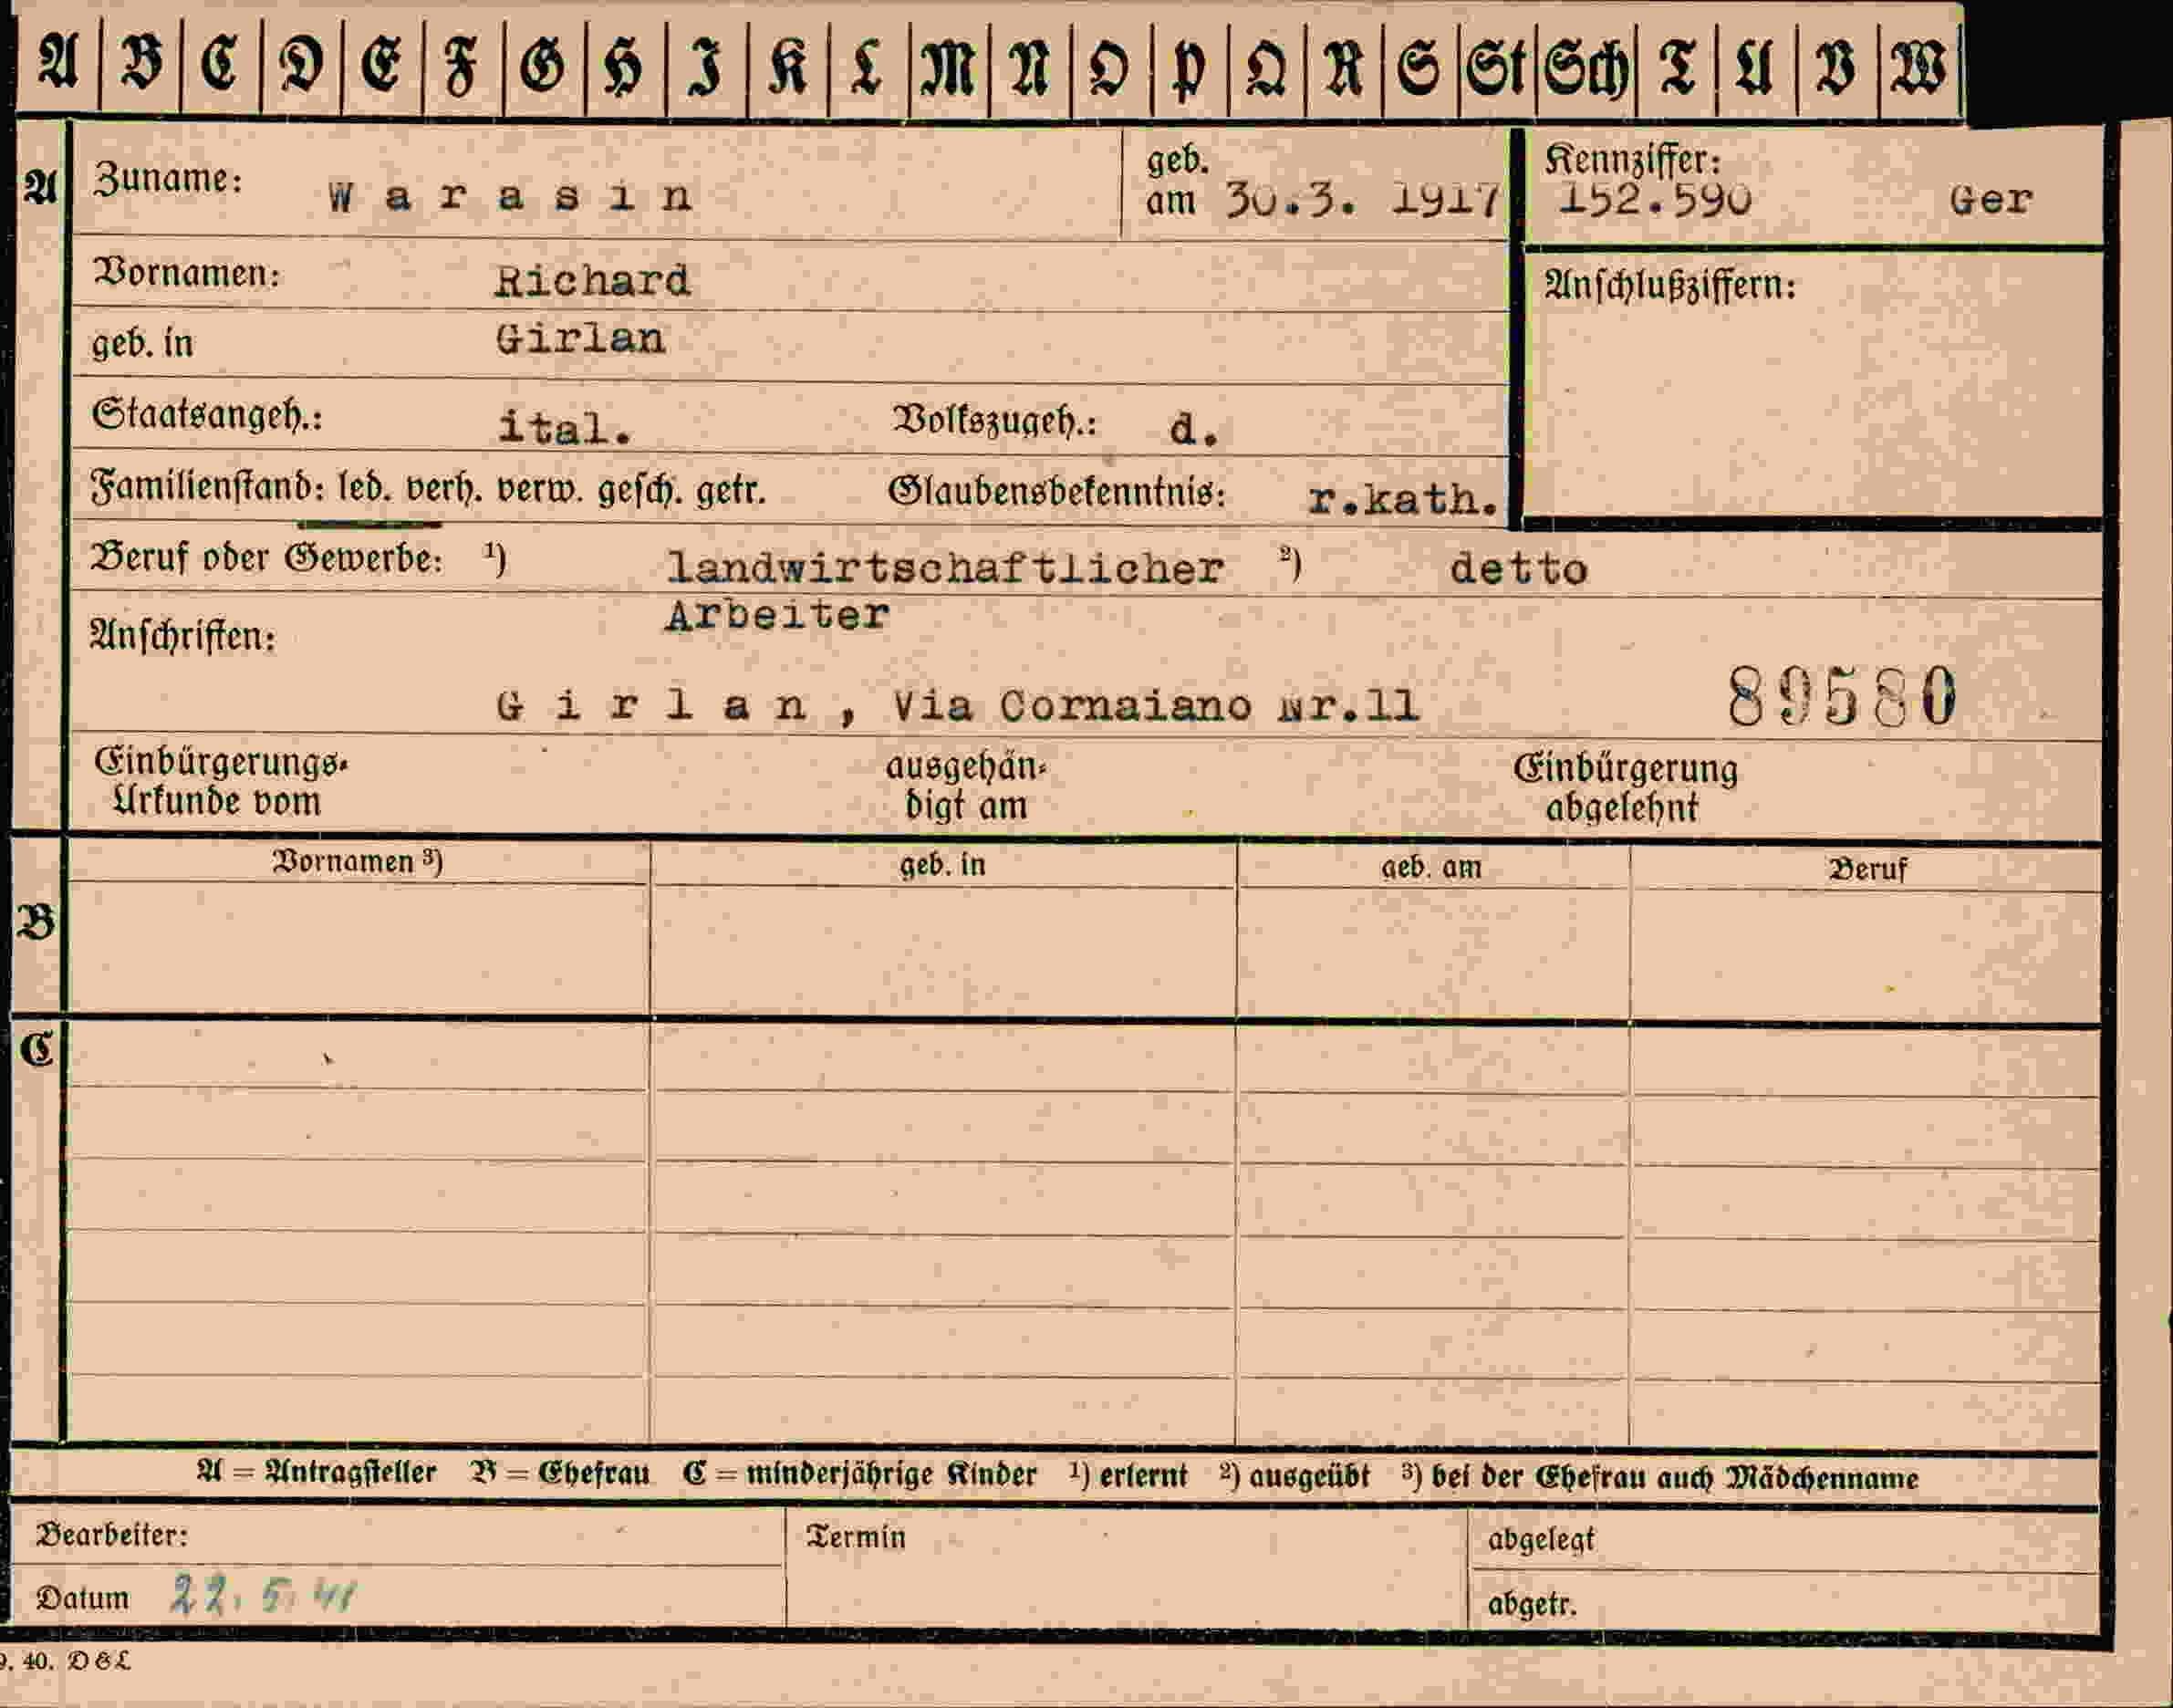 A B C D E F G H I K L M N O P Q R S St Sch T U V W
A Zuname: Warasin geb. am 30.3. 1917 Kennziffer: 152.590 Ger
Vornamen: Richard Anschlußziffern:
geb. in Girlan
Staatsangeh.: ital. Volkszugeh.: d.
Familienstand: led. verh. verw. gesch. getr. Glaubensbekenntnis: r.kath.
Beruf oder Gewerbe: ¹) landwirtschaftlicher ²) detto
Arbeiter
Anschriften:
Girlan, Via Cornaiano Nr.11 89580
Einbürgerungs- ausgehän- Einbürgerung
Urkunde vom digt am abgelehnt
Vornamen ³) geb. in geb. am Beruf
B
C
A = Antragsteller B = Ehefrau C = minderjährige Kinder ¹) erlernt ²) ausgeübt ³) bei der Ehefrau auch Mädchenname
Bearbeiter: Termin abgelegt
Datum 22. 5. 41 abgetr.
9. 40. D &L